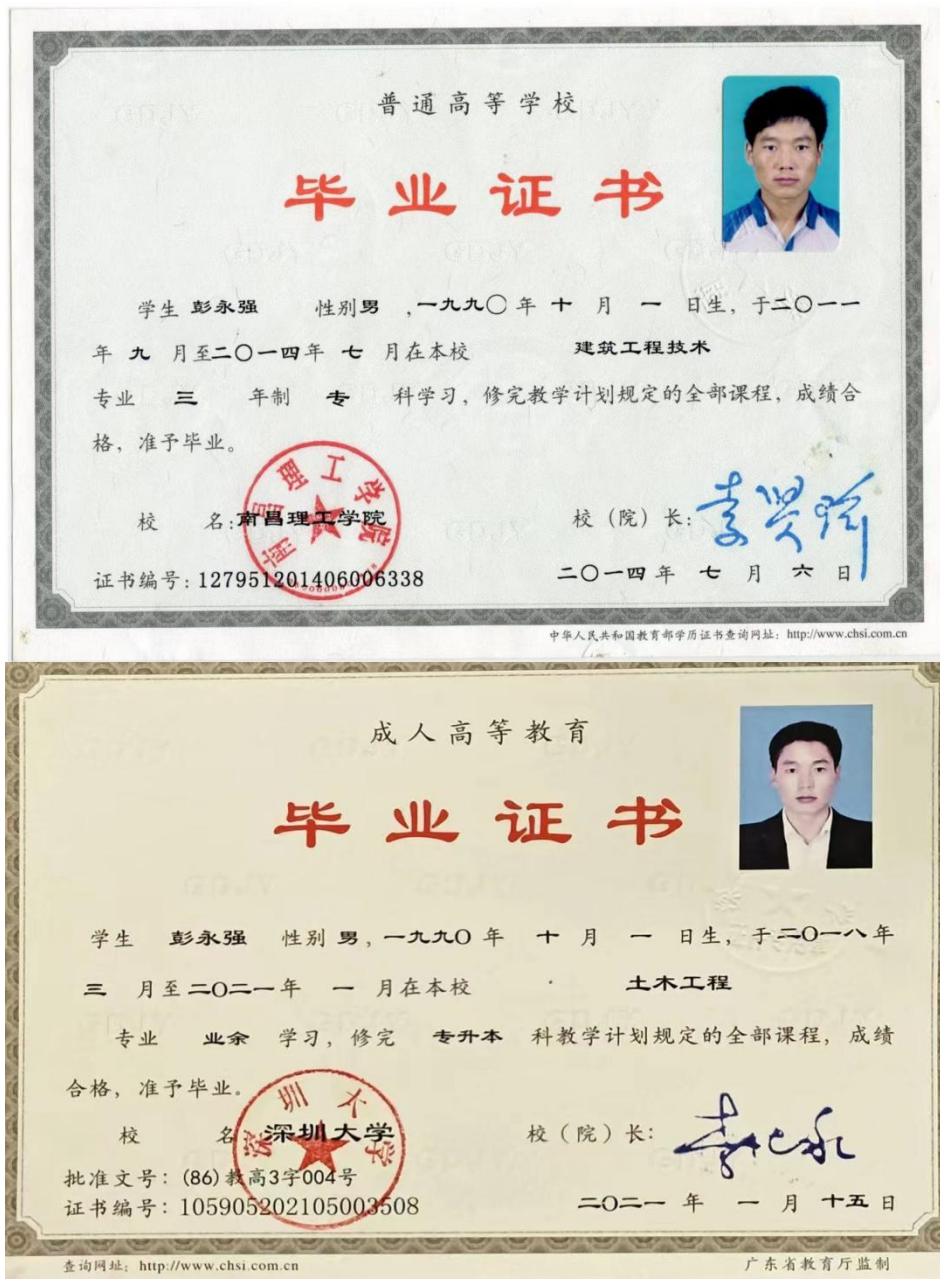 普通高等学校
毕业证书
学生 彭永强 性别 男 ,一九九〇年 十 月 一 日生，于二〇一一
年 九 月至二〇一四年 七 月在本校 建筑工程技术
专业 三 年制 专 科学习，修完教学计划规定的全部课程，成绩合
格，准予毕业。
南昌理工学院
校 名:南昌理工学院 校（院）长:
证书编号:127951201406006338 二〇一四年 七 月 六 日
中华人民共和国教育部学历证书查询网址：http://www.chsi.com.cn
成人高等教育
毕业证书
学生 彭永强 性别 男，一九九〇年 十 月 一 日生，于二〇一八年
三 月至二〇二一年 一 月在本校 土木工程
专业 业余 学习，修完 专升本 科教学计划规定的全部课程，成绩
合格，准予毕业。
深圳大学
校 名 深圳大学 校（院）长：
批准文号：(86)教高3字004号
证书编号：105905202105003508 二〇二一年 一 月 十五 日
查询网址：http://www.chsi.com.cn 广东省教育厅监制